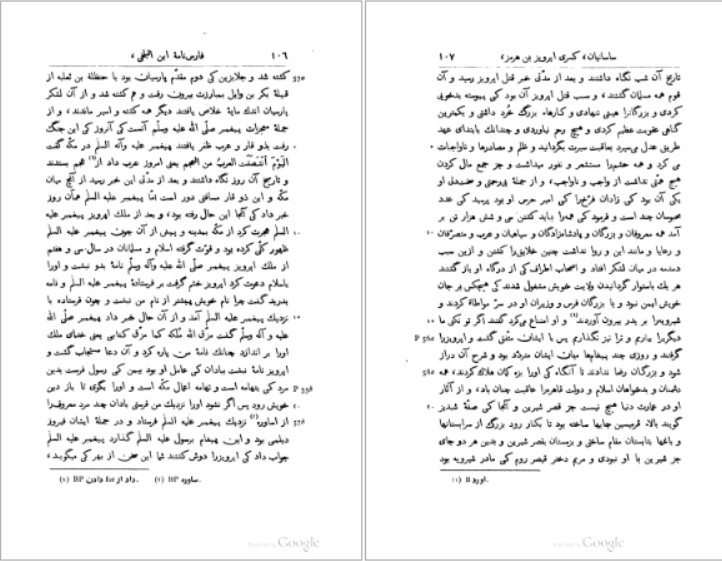 ١٠٦ فارس‌نامهٔ ابن البلخی،
کشته شد و جلابزین کی دوم مقدّم پارسیان بود با حنظلة بن ثعلبه از
قبیلهٔ بکر بن وایل بمبارزت بیرون رفت و هم کشته شد و از آن لشکر
پارسیان اندك مایهٔ خلاص یافتند دیگر همه کشته و اسیر ماندند، و از
جملهٔ معجزات پیغمبر صلّی الله علیه وسلّم آنست کی آنروز کی این جنگ
رفت بذو قار و عرب ظفر یافتند پیغمبر علیه وآله السلم در مکّه گفت
الیَوْمَ انْتَصَفَتْ العربُ من العجم یعنی امروز عرب داد از(١) عجم بستدند
و تاریخ آن روز نگاه داشتند و بعد از مدّتی این خبر رسید از آنچ میان
مکّه و این ذو قار مسافتی دور است امّا پیغمبر علیه السلم همآن روز
خبر داد کی آنجا این حال رفته بود، و بعد از ملك اپرویز پیغمبر علیه
السلم هجرت کرد از مکّه بمدینه و پیش از آن چون پیغمبر علیه السلم
ظهور کی کرده بود و قوّت گرفته اسلام و مسلمانان در سال سی و هفتم
از ملك اپرویز پیغمبر صلّی الله علیه وآله وسلّم نامهٔ بدو نبشت و اورا
باسلام دعوت کرد اپرویز خشم گرفت بر فرستادهٔ پیغمبر علیه السلم و نامه
بدرید گفت چرا نام خویش پیشتر از نام من نبشت و چون فرستاده با
نزدیك پیغمبر علیه السلم آمد و از آن حال خبر داد پیغمبر صلّی الله
علیه و آله وسلّم گفت مزّق الله ملکه کما مزّق کتابی یعنی خدای ملك
اورا بر اندازد چنانك نامهٔ من پاره کرد و آن دعا مستجاب گشت و
اپرویز نامهٔ نبشت بباذان کی عامل او بود بیمن کی رسول فرست بدین
P 55b مرد کی بتهامه است و تهامه اعمال مکّه است و اورا بگوی تا باز دین
خویش رود پس اگر نشود اورا نزدیك من فرستی باذان چند مرد معروف‌را
از اساوره(٢) نزدیك پیغمبر علیه السلم فرستاد و در جملهٔ ایشان فیروز
دیلمی بود و این پیغام برسول علیه السلم گذارد پیغمبر علیه السلم
جواب داد کی اپرویزرا دوش کشتند شما این سخن از بهر کی میگویید،
(١) BP دادن for داد از. (٢) BP ساوره.
ساسانیان، کسری اپرویز بن هرمز، ١٠٧
تاریخ آن شب نگاه داشتند و بعد از مدّتی خبر قتل اپرویز رسید و آن
قوم همه مسلمان گشتند، و سبب قتل اپرویز آن بود کی پیوسته بدخویی
کردی و بزرگانرا هیبتی ننهادی و کارهاء بزرگ خرد داشتی و بکمترین
گناهی عقوبت عظیم کردی و هیچ رحم نیاوردی و چندانك بابتدای عهد
طریق عدل می‌سپرد بعاقبت سیرت بگردانید و ظلم و مصادرها و ناواجبات
می کرد و همه حشم‌را مستشعر و نفور میداشت و جز جمع مال کردن
هیچ همّتی نداشت از واجب و ناواجب، و از جملهٔ بی‌رحمی و سخت‌دلی او
یکی آن بود کی زادان فرّخ‌را کی امیر حرس او بود پرسید کی عدد
محبوسان چند است و فرمود کی همه‌را بباید کشتن سی و شش هزار تن بر
آمد همه معروفان و بزرگان و پادشاهزادگان و سپاهیان و عرب و متصرّفان
و رعایا و مانند این و روا نداشت چنین خلایق‌را کشتن و ازین سبب
دمدمه در میان لشکر افتاد و اصحاب اطراف کی از درگاه او باز گشتند
هر یك باستوار گردانیدن ولایت خویش مشغول شدند کی هیچکس بر جان
خویش ایمن نبود و با بزرگان فرس و وزیران او در سرّ مواطاة کردند و
شیرویه‌را بر پدر بیرون آوردند(١) و او امتناع می‌کرد گفتند اگر تو نکنی ما
P 56a دیگری‌را بیاریم و ترا نیز نگذاریم پس با ایشان متّفق گشت و اپرویزرا
گرفتند و روزی چند پیغامها میان ایشان متردّد بود و شرح آن دراز
شود و بزرگان رضا ندادند تا آنگاه کی اورا بزه کمان هلاك کردند، همه
دشمنان و بدخواهان اسلام و دولت قاهره‌را عاقبت چنان باد، و از آثار
او در عمارت دنیا هیچ نیست جز قصر شیرین و آنجا کی صفّهٔ شبدیز
گویند بالاء قرمیسین جایها ساخته بود تا بکنار رود بزرگ از سرابستانها
و باغها بتابستان مقام ساختی و بزمستان بقصر شیرین و بدین هر دو جای
جز شیرین با او نبودی و مریم دختر قیصر روم کی مادر شیرویه بود
(١) B اورد.
Digitized by Google
Digitized by Google